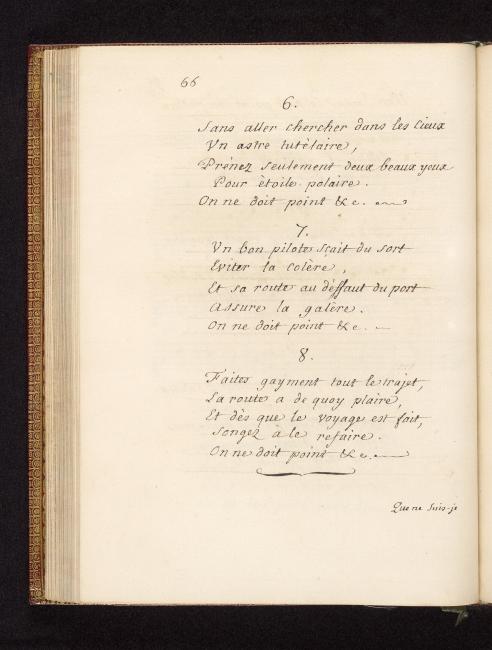 66
6.
Sans aller chercher dans les Cieux
Un astre tutélaire,
Prénez seulement deux beaux yeux
Pour étoile polaire.
On ne doit point &c.
7.
Un bon pilote sçait du sort
Eviter la colère,
Et sa route au déffaut du port
Assure la galère.
On ne doit point &c.
8.
Faites gayment tout le trajet,
La route a de quoy plaire,
Et dès que le voyage est fait,
Songez à le refaire.
On ne doit point &c.
Que ne suis-je